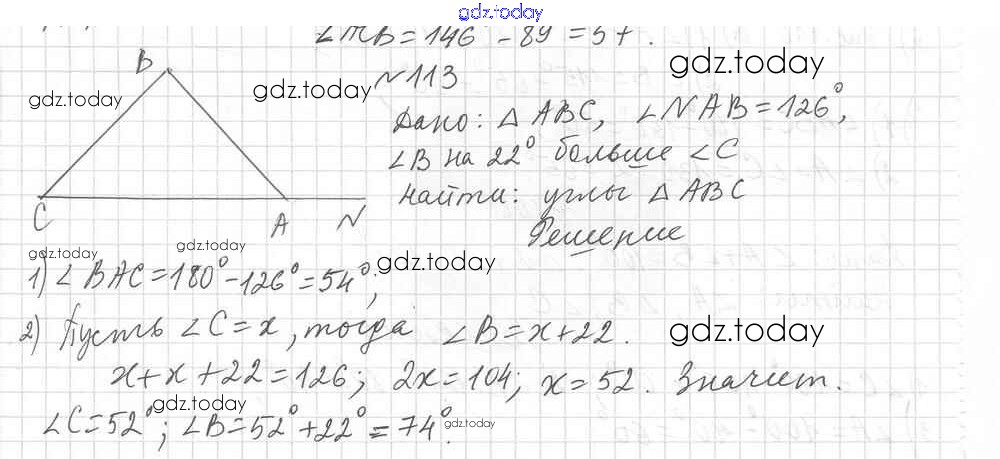 gdz.today
= 146° - 89 = 57.
№ 113
gdz.today
gdz.today
gdz.today
B
Дано: △ ABC, ∠NAB = 126°,
∠B на 22° больше ∠C
Найти: углы △ ABC
C A N
Решение
gdz.today
gdz.today
gdz.today
1) ∠BAC = 180° - 126° = 54°;
2) Пусть ∠C = x, тогда ∠B = x + 22.
gdz.today
x + x + 22 = 126; 2x = 104; x = 52. Значит.
gdz.today
∠C = 52°; ∠B = 52° + 22° = 74°.
gdz.today